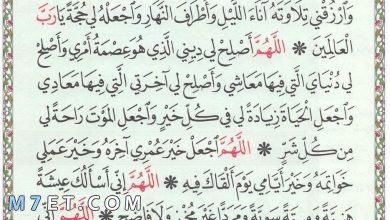 وَارْزُقْنِي تِلَاوَتَهُ آنَاءَ اللَّيْلِ وَأَطْرَافَ النَّهَارِ وَاجْعَلْهُ لِي حُجَّةً يَا رَبَّ
الْعَالَمِينَ * اللَّهُمَّ أَصْلِحْ لِي دِينِي الَّذِي هُوَ عِصْمَةُ أَمْرِي وَأَصْلِحْ
لِي دُنْيَايَ الَّتِي فِيهَا مَعَاشِي وَأَصْلِحْ لِي آخِرَتِي الَّتِي فِيهَا مَعَادِي
وَاجْعَلِ الْحَيَاةَ زِيَادَةً لِي فِي كُلِّ خَيْرٍ وَاجْعَلِ الْمَوْتَ رَاحَةً لِي
مِنْ كُلِّ شَرٍّ * اللَّهُمَّ اجْعَلْ خَيْرَ عُمْرِي آخِرَهُ وَخَيْرَ عَمَلِي
خَوَاتِمَهُ وَخَيْرَ أَيَّامِي يَوْمَ أَلْقَاكَ فِيهِ * اللَّهُمَّ إِنِّي أَسْأَلُكَ عِيشَةً
هَنِيَّةً وَمِيتَةً سَوِيَّةً وَمَرَدًّا غَيْرَ مُخْزٍ وَلَا فَاضِحٍ * اللَّهُمَّ إِنِّي
M7ET.COM